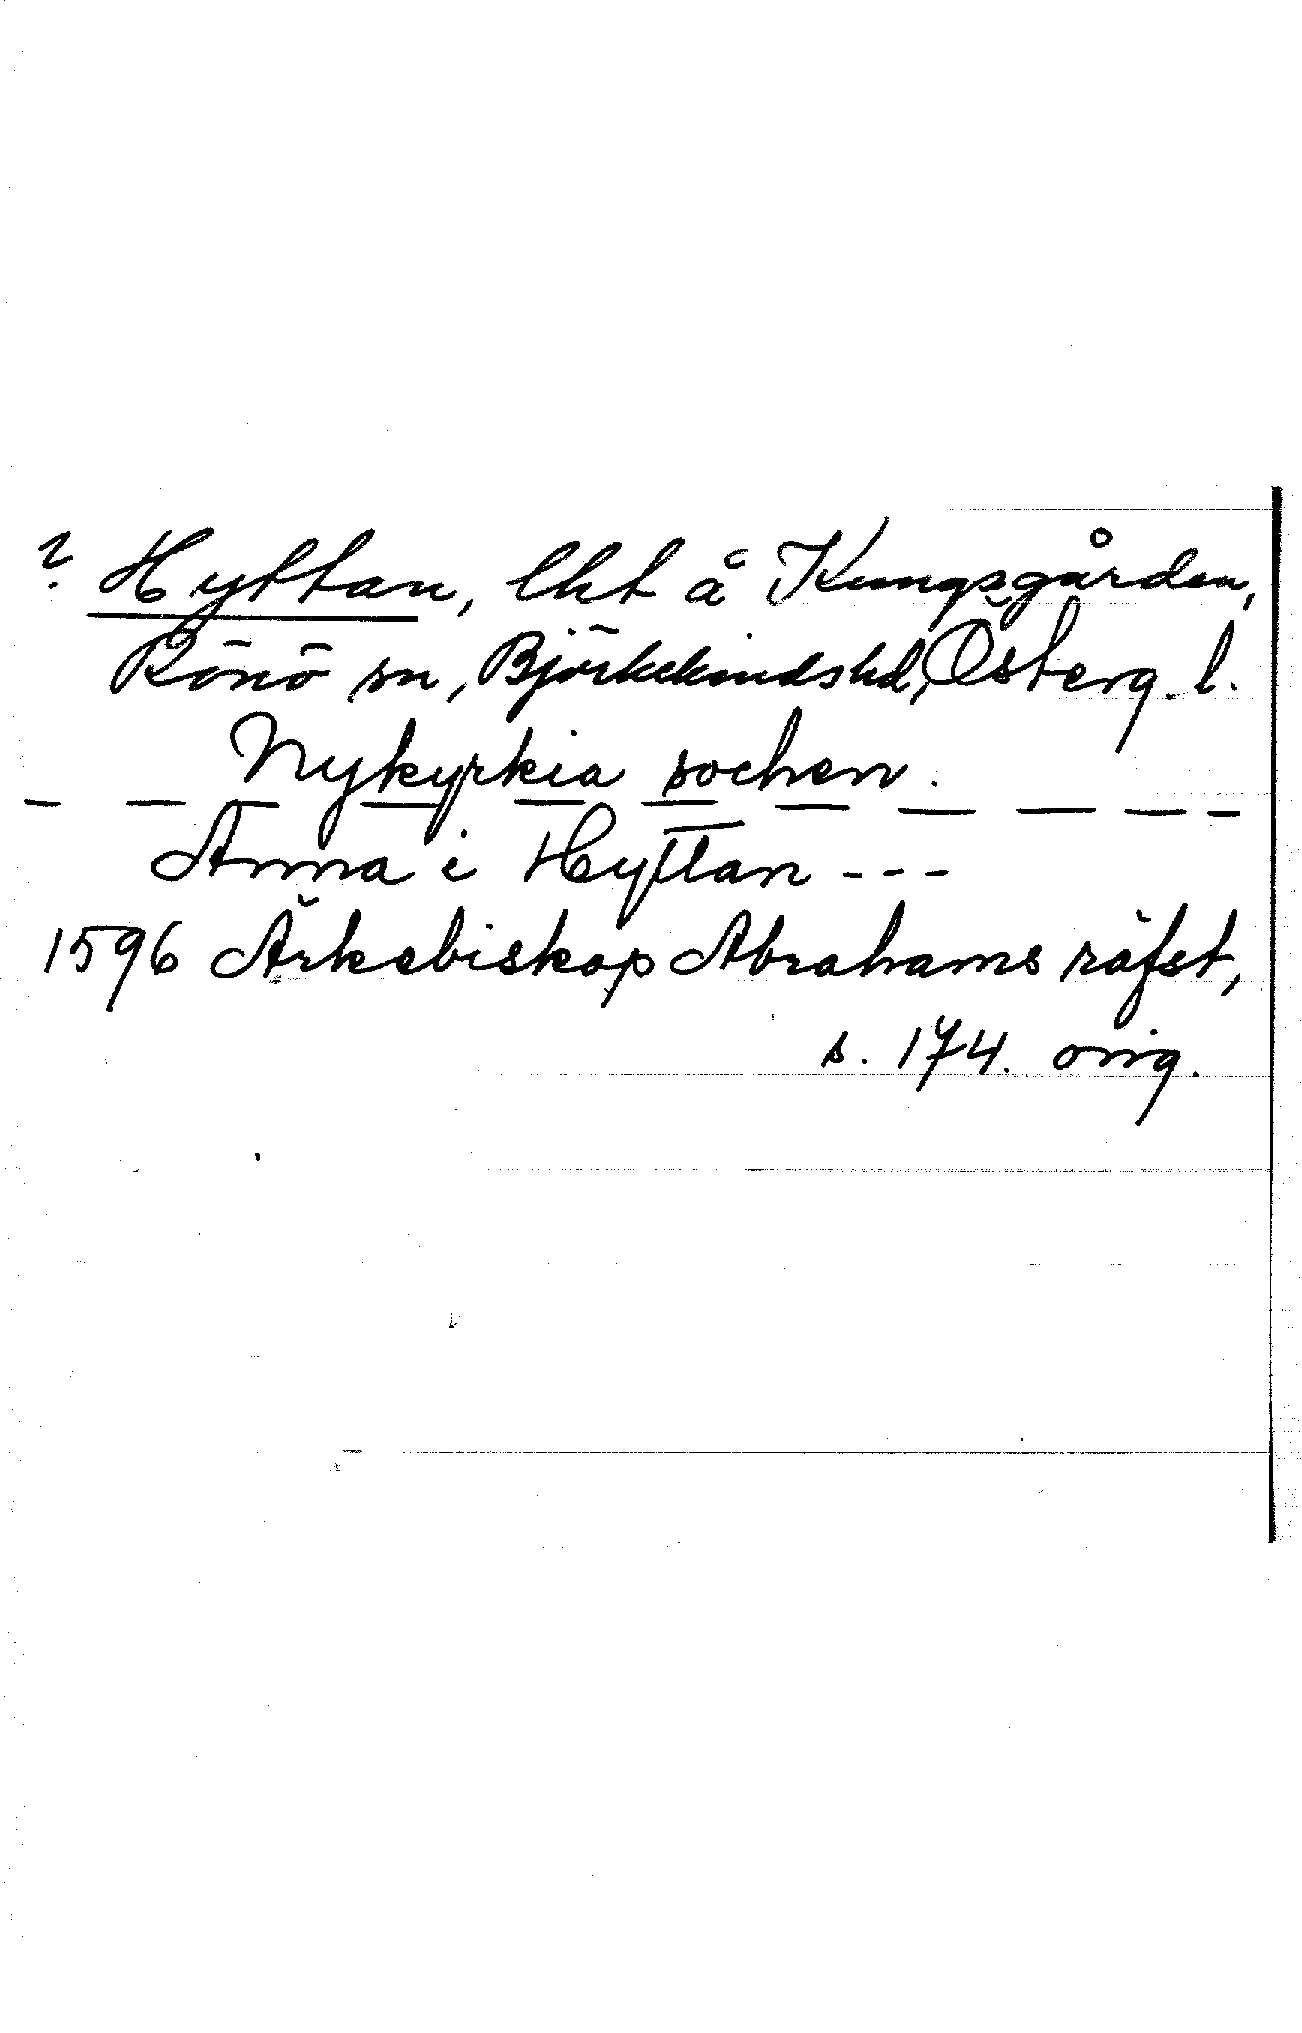 ? Hyttan, lht å Kungsgården,
Rönö sn, Björkekindshd, Österg. l.
Nykyrkia sochen.
— — — — — — — — — — —
Anna i Hyttan ---
1596 Ärkebiskop Abrahams räfst,
s. 174. orig.